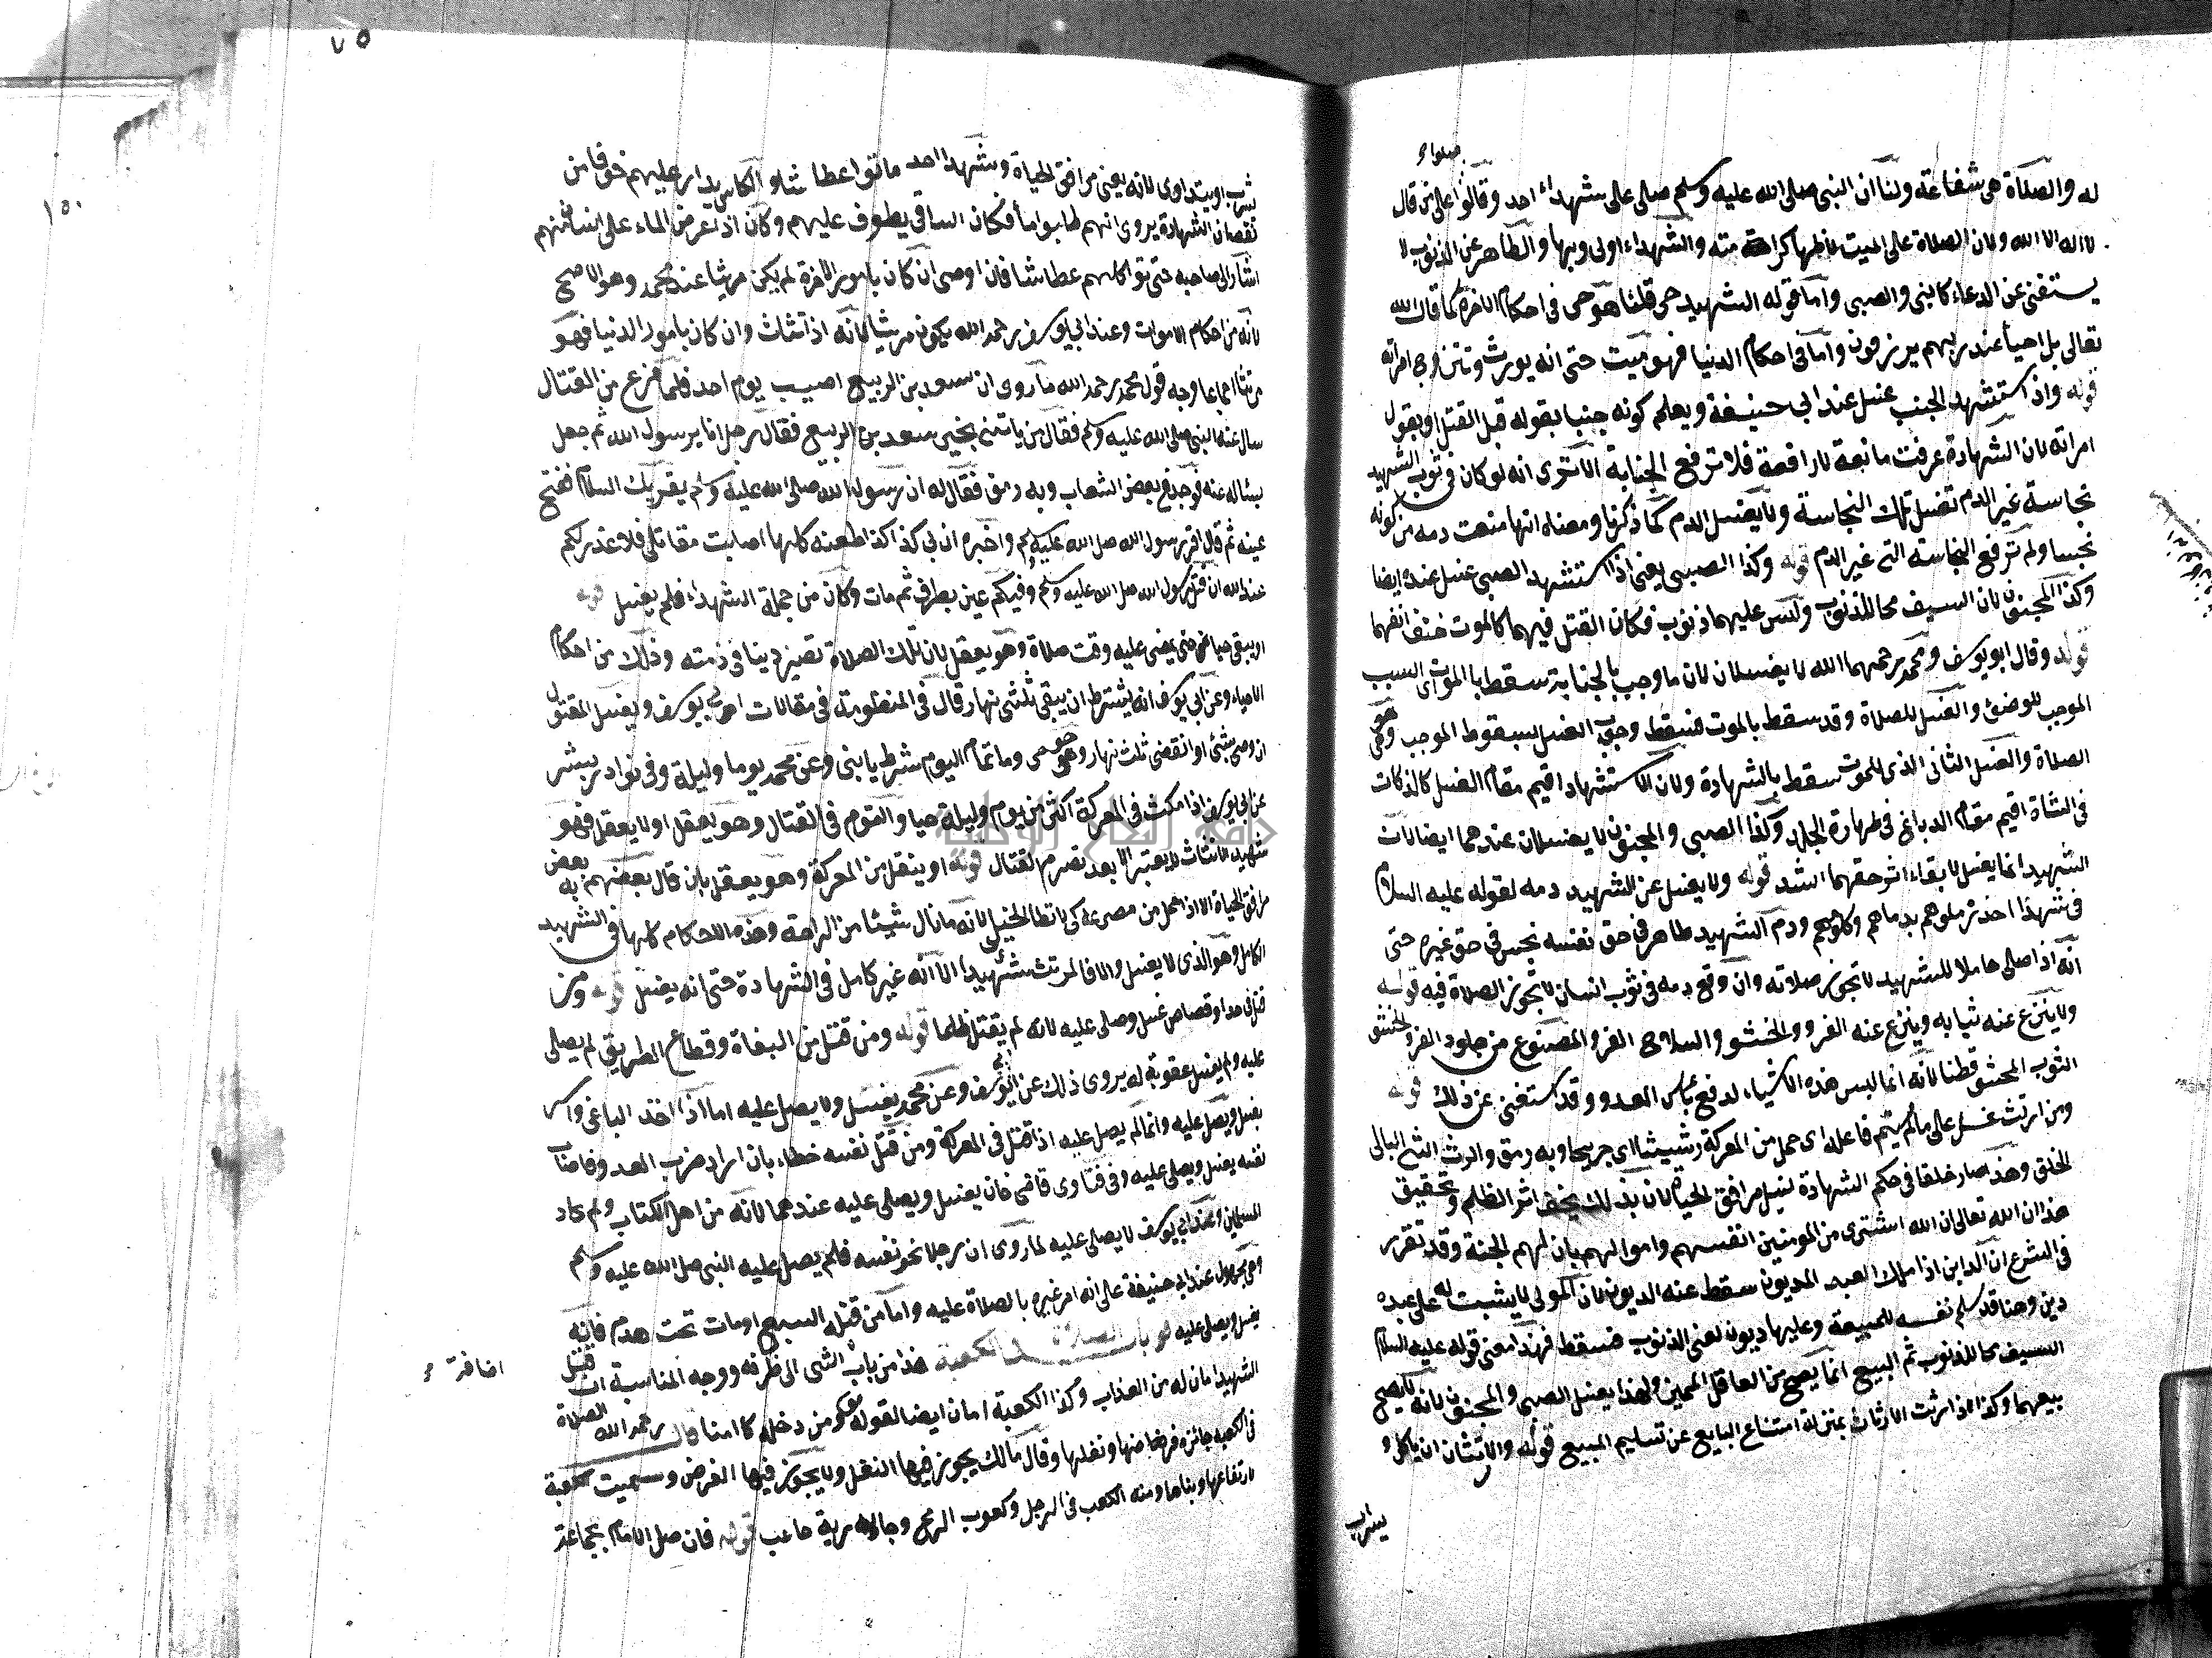 صلوا
له والصلاة هى شفاعة ولنا ان النبى صلى الله عليه وسلم صلى على شهداء احد وقالوا على من قال
لا اله الا الله ولان الصلاة على الميت لاظهار كرامته والشهداء اولى وبها والطاهر عن الذنوب لا
يستغنى عن الدعاء كالنبى والصبى واما قوله الشهيد حى قلنا هو حى فى احكام الاخرة كما قال الله
تعالى بل احياء عند ربهم يرزقون واما فى احكام الدنيا فهو ميت حتى انه يورث وتتزوج امراته
قوله واذا استشهد الجنب غسل عند ابى حنيفة ويعلم كونه جنبا بقوله قبل القتل او بقول
امراته لان الشهادة عرفت مانعة لا رافعة فلا ترفع الجنابة الا ترى انه لو كان فى ثوب الشهيد
نجاسة غير الدم تغسل تلك النجاسة ولا يغسل الدم كما ذكرنا ومعناه انها منعت دمه من كونه
نجسا ولم ترفع النجاسة التى غير الدم قوله وكذا الصبى يعنى اذا استشهد الصبى غسل عنده ايضا
وكذا المجنون لان السيف محاء للذنوب وليس عليهما ذنوب فكان القتل فيهما كالموت حتف انفهما
قوله وقال ابو يوسف ومحمد رحمهما الله لا يغسلان لان ما وجب بالجنابة سقط بالموت اى السبب
الموجب للوضوء والغسل للصلاة وقد سقط بالموت فسقط وجوب الغسل لسقوط الموجب وهو
الصلاة والغسل الثانى الذى للموت سقط بالشهادة ولان الاستشهاد اقيم مقام الغسل كالذكاة
فى الشاة اقيم مقام الدباغ فى طهارة الجلد وكذا الصبى والمجنون لا يغسلان عندهما ايضا لان
الشهيد انما يغسل لابقاء اثر حقهما اشد قوله ولا يغسل عن الشهيد دمه لقوله عليه السلام
فى شهداء احد زملوهم بدماهم وكلومهم ودم الشهيد طاهر فى حق نفسه نجس فى حق غيره حتى
انه اذا صلى حاملا للشهيد تجوز صلاته وان وقع دمه فى ثوب انسان لا تجوز الصلاة فيه قوله
ولا ينزع عنه ثيابه وينزع عنه الفرو والحشو والسلاح الفرو المصنوع من جلود الفرو والحشو
الثوب المحشو قطنا لانه انما لبس هذه الاشياء لدفع بأس العدو وقد استغنى عن ذلك قوله
ومن ارتث غسل على ما لم يسم فاعله اى حمل من المعركة رثيثا اى جريحا وبه رمق والرث الشئ البالى
الخلق وهذا صار خلقا فى حكم الشهادة لنيل مرافق الحياة لان بذلك يخف اثر الظلم وتحقيق
هذا ان الله تعالى ان الله اشترى من المومنين انفسهم واموالهم بان لهم الجنة وقد تقرر
فى الشرع ان الداين اذا ملك العبد المديون سقط عنه الديون لان المولى لا يثبت له على عبده
دين وهنا قد سلم نفسه للمبيعة وعليها ديون لعنى الذنوب فسقط فهذا معنى قوله عليه السلام
السيف محاء للذنوب ثم البيع انما يصح من العاقل المميز ولهذا يغسل الصبى والمجنون لانه لا يصح
بيعهما وكذا اذا ارتث الارتثاث بمنزلة امتناع البايع عن تسليم المبيع قوله والارتثاث ان ياكل او
يشرب
٧٥
١٥٠
يشرب او يتداوى لانه يعنى مرافق الحياة وشهداء احد ماتوا عطاشا والكاس يدار عليهم خوفا من
نقصان الشهادة يروى انهم طلبوا ماء فكان الساقى يطوف عليهم وكان اذا عرض الماء على انسان منهم
اشار الى صاحبه حتى ماتوا كلهم عطاشا فان اوصى ان كان بامور الاخرة لم يكن مرتثا عند محمد وهو الاصح
لانه من احكام الاموات وعند ابى يوسف رحمه الله يكون مرتثا لانه ارتثاث وان كان بامور الدنيا فهو
مرتثا اجماعا وجه قول محمد رحمه الله ما روى ان سعد بن الربيع اصيب يوم احد فلما فرغ من القتال
سال عنه النبى صلى الله عليه وسلم فقال من ياتنى بخبر سعد بن الربيع فقال رجل انا يرسول الله ثم جعل
يساله عنه فوجد فى بعض الشعاب وبه رمق فقال له ان رسول الله صلى الله عليه وسلم يقريك السلام ففتح
عينه ثم قال اقر رسول الله صلى الله عليه وسلم واخبره ان بى كذا كذا طعنة كلها اصابت مقاتلى فلا عذر لكم
عند الله ان قتل رسول الله صلى الله عليه وسلم وفيكم عين يطرف ثم مات وكان من جملة الشهداء فلم يغسل قوله
او يبقى حيا حتى يمضى عليه وقت صلاة وهو يعقل لان تلك الصلاة تصير دينا فى ذمته وذلك من احكام
الاحياء وعن ابى يوسف انه يشترط ان يبقى ثلثى نهار قال فى المنظومة فى مقالات ابى يوسف ويغسل المقتول
ان وصى بشئ او انقضى ثلث نهار وهو حى وما تمام اليوم شرط يا بنى وعن محمد يوما وليلة وفى نوادر بشر
عن ابى يوسف اذا مكث فى المعركة اكثر من يوم وليلة حيا والقوم فى القتال وهو يعقل او لا يعقل فهو
شهيد لان الارتثاث لا يعتبر الا بعد تصرم القتال قوله او ينقل من المعركة وهو يعقل بان قال بعضهم به بعض
مرافق الحياة الا اذا حمل من مصرعه كى لا تطاه الخيل لانه ما نال شيئا من الراحة وهذه الاحكام كلها فى الشهيد
الكامل وهو الذى لا يغسل والا فالمرتث شهيدا الا انه غير كامل فى الشهادة حتى انه يغسل قوله ومن
قتل فى حد او قصاص غسل وصلى عليه لانه لم يقتل ظلما قوله ومن قتل من البغاة وقطاع الطريق لم يصلى
عليه ولم يغسل عقوبة له يروى ذلك عن ابى يوسف وعن محمد يغسل ولا يصلى عليه اما اذا اخذ الباغى واسر
يغسل ويصلى عليه وانما لم يصل عليه اذا قتل فى المعركة ومن قتل نفسه خطاء بان اراد ضرب العدو فاصاب
نفسه يغسل ويصلى عليه وفى فتاوى قاضى خان يغسل ويصلى عليه عندهما لانه من اهل الكتاب ولم
المسلمين وعند ابى يوسف لا يصلى عليه لما روى ان رجلا نحر نفسه فلم يصل عليه النبى صلى الله عليه وسلم
وهو محمول عند ابى حنيفة على انه امر غيره بالصلاة عليه واما من قتله السبع او مات تحت هدم فانه
يغسل ويصلى عليه قوله باب الصلاة فى الكعبة هذا من باب اضافة الشى الى ظرفه ووجه المناسبة ان قتل
اضافة
الشهيد امان له من العذاب وكذا الكعبة امان ايضا لقوله تعالى ومن دخله كان امنا قال رحمه الله الصلاة
فى الكعبة جائزة فرضها ونفلها وقال مالك يجوز فيها النفل ولا يجوز فيها الفرض وسميت كعبة
لارتفاعها وبنائها ومنه الكعب فى الرجل وكعوب الرمح وجارية كاعب قوله فان صلى الامام بجماعة